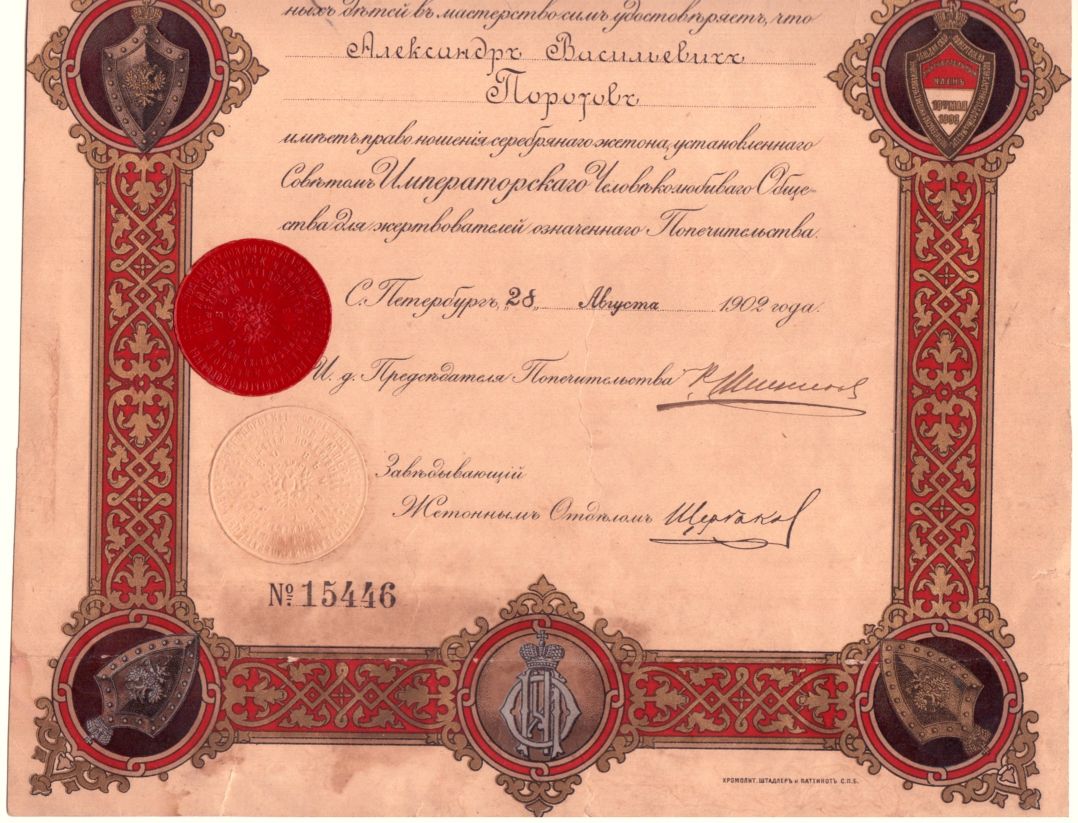 ныхъ дѣтей въ мастерство симъ удостовѣряетъ, что
Александръ Васильевичъ
Поротовъ
имѣетъ право ношенія серебрянаго жетона, установленнаго
Совѣтомъ Императорскаго Человѣколюбиваго Обще-
ства для жертвователей означеннаго Попечительства.
С. Петербургъ, „28„ Августа 1902 года.
И. д. Предсѣдателя Попечительства
Завѣдывающій
Жетоннымъ Отдѣломъ Щербаковъ
№ 15446
ХРОМОЛИТ. ШТАДЛЕРЪ и ПАТТИНОТЪ С.П.Б.